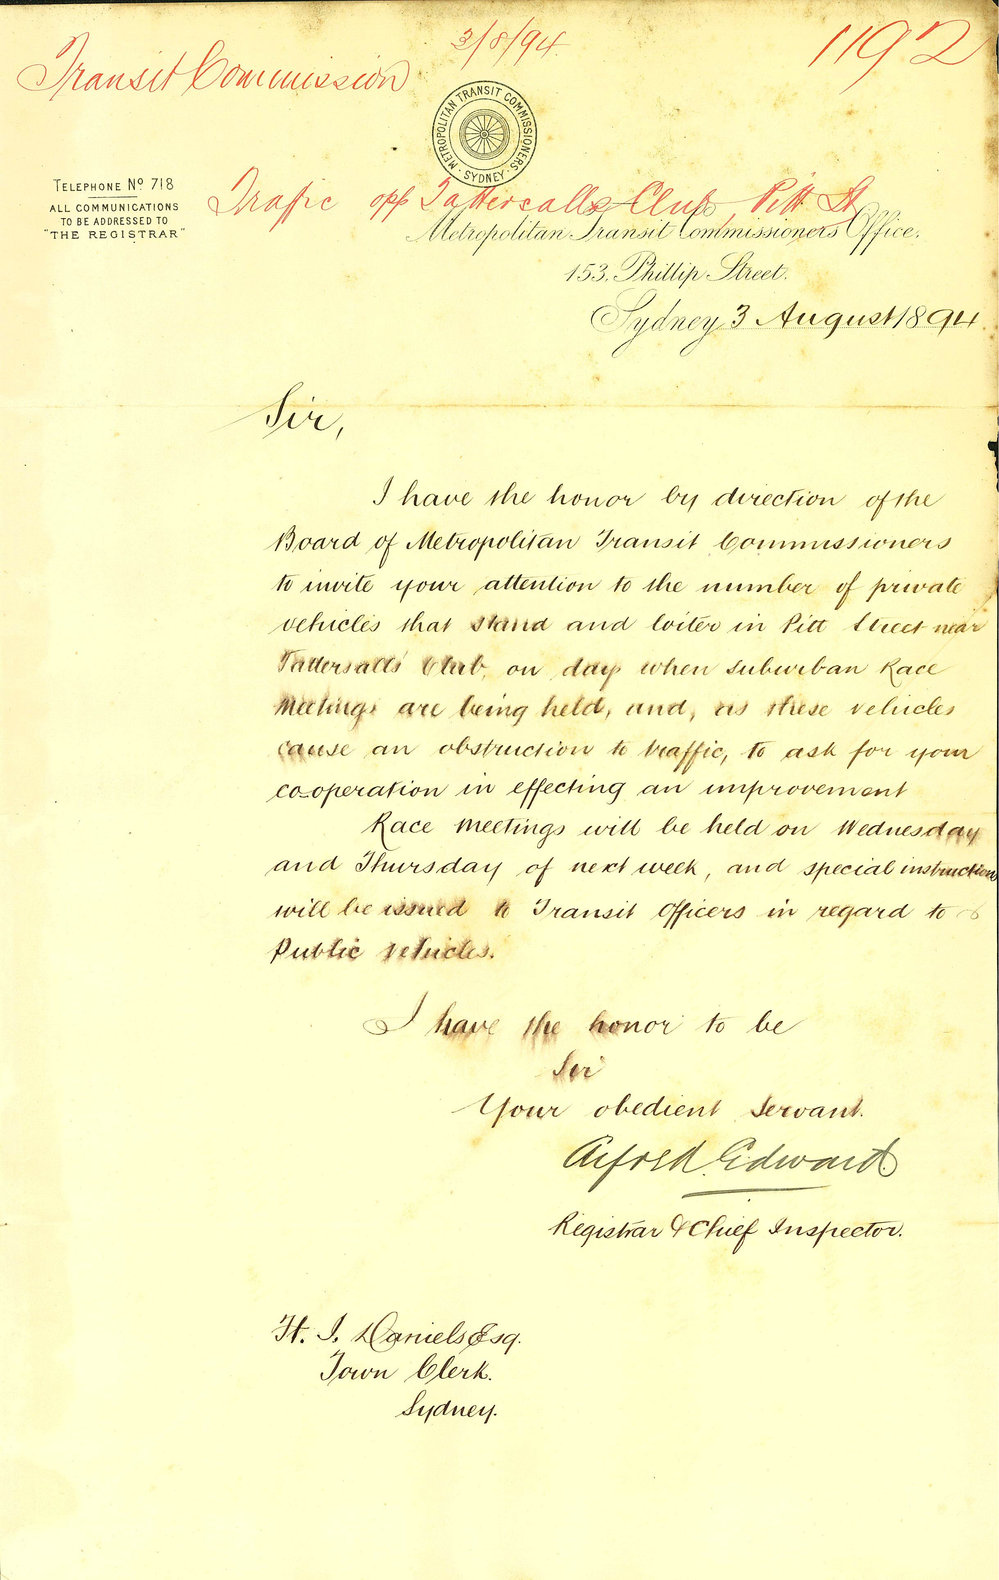 3/8/94
1192
Transit Commission
METROPOLITAN TRANSIT COMMISSIONERS
· SYDNEY ·
TELEPHONE No 718
ALL COMMUNICATIONS
TO BE ADDRESSED TO
"THE REGISTRAR"
Trafic opp Tattersalls Club, Pitt St
Metropolitan Transit Commissioners Office.
153, Phillip Street.
Sydney 3 August 1894
Sir,
I have the honor by direction of the
Board of Metropolitan Transit Commissioners
to invite your attention to the number of private
vehicles that stand and loiter in Pitt Street near
Tattersalls' Club, on day when suburban Race
Meetings are being held, and, as these vehicles
cause an obstruction to traffic, to ask for your
co-operation in effecting an improvement
Race Meetings will be held on Wednesday
and Thursday of next week, and special instructions
will be issued to Transit Officers in regard to
Public Vehicles.
I have the honor to be
Sir
Your obedient Servant.
Alfred Edward
Registrar & Chief Inspector.
H. J. Daniels Esq.
Town Clerk.
Sydney.